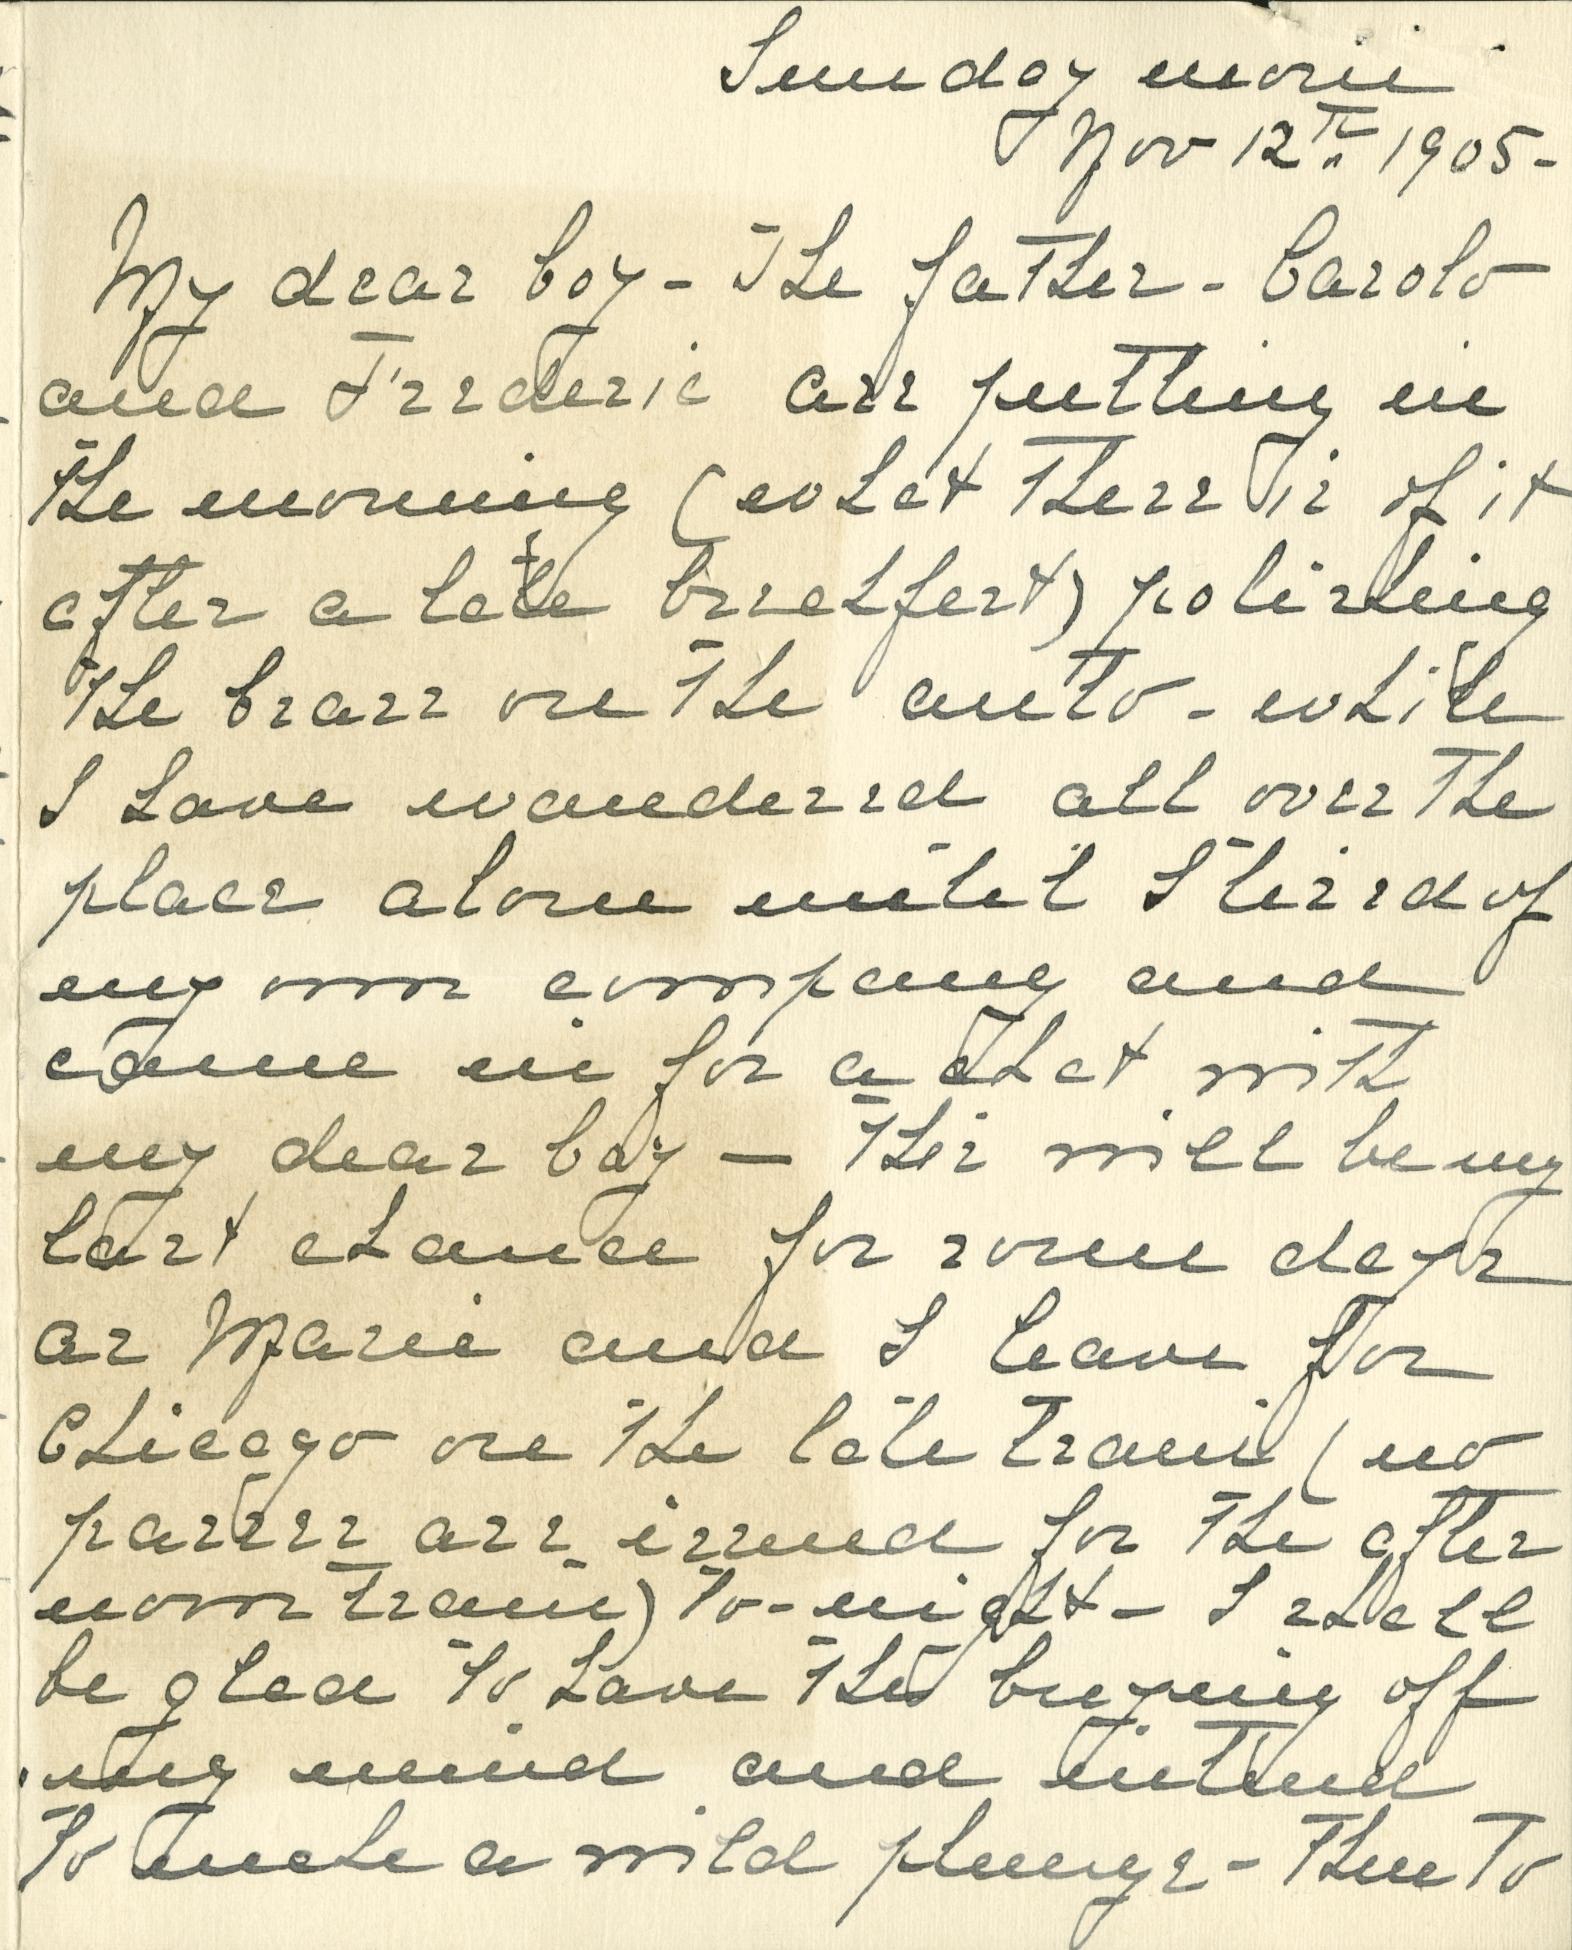 Sunday morn
Nov 12th 1905-
My dear boy - The father - Carolo
and Frederic are putting in
the morning (what there is of it
after a late breakfast) polishing
the brass on the auto - while
I have wandered all over the
place alone until I tired of
my own company and
came in for a chat with
my dear boy — This will be my
last chance for some days
as Marie and I leave for
Chicago on the late train (no
passes are issued for the after
noon train) to-night - I shall
be glad to have the buying off
my mind and intend
to make a wild plunge - Then to